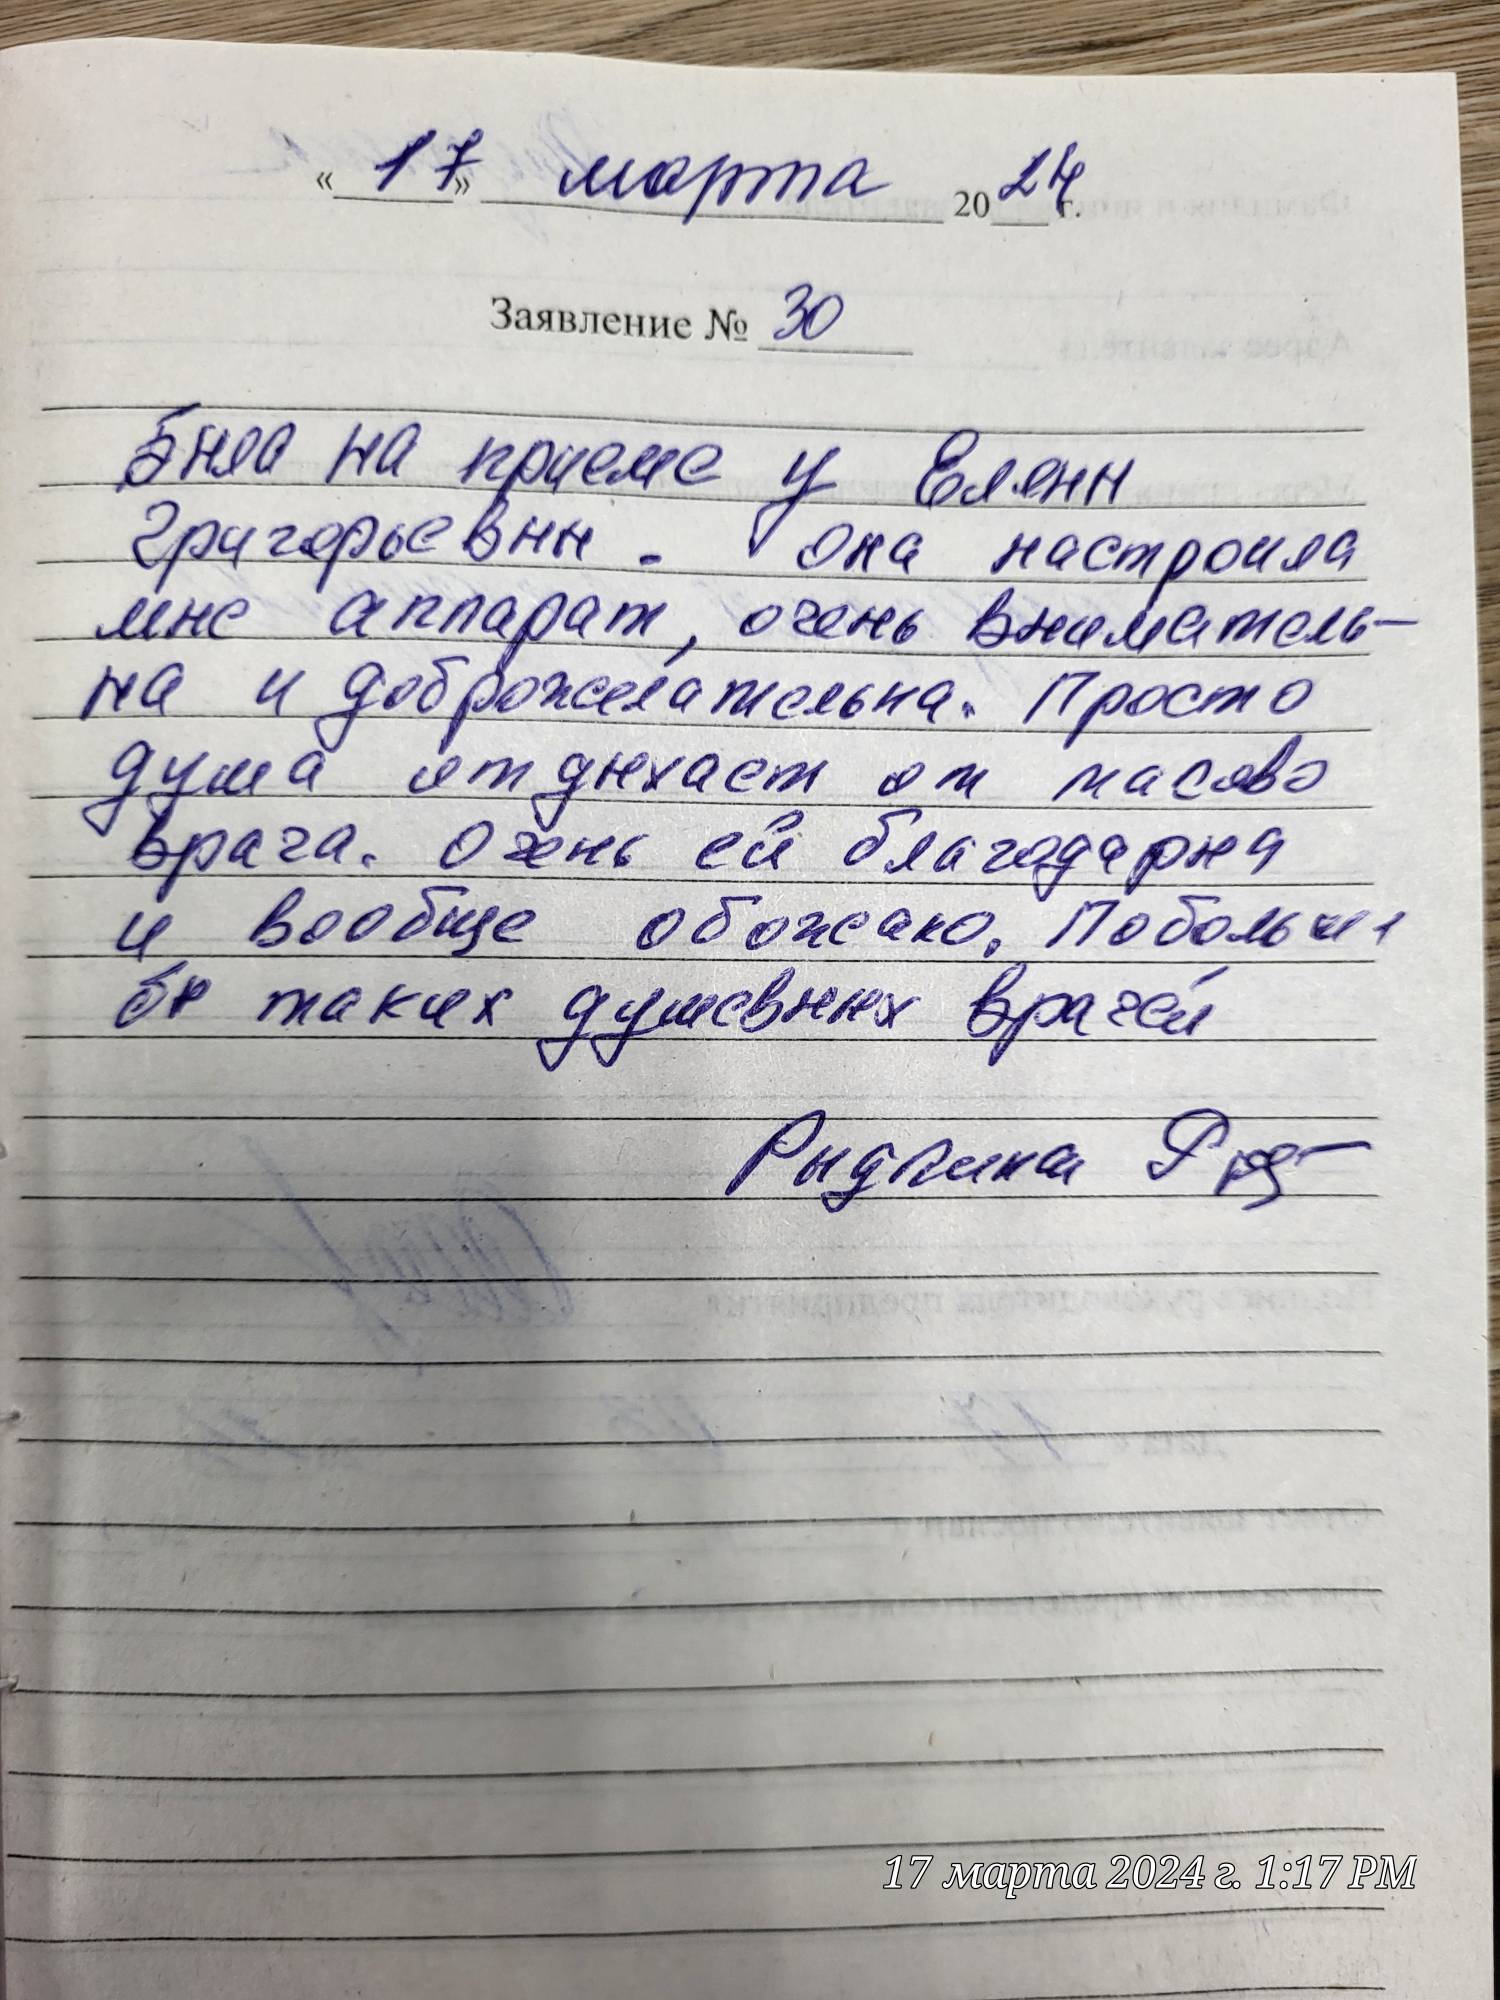 « 17 » марта 2024 г.
Заявление № 30
Была на приеме у Елены
Григорьевны. Она настроила
мне аппарат, очень вниматель-
на и доброжелательна. Просто
душа отдыхает от такого
врача. Очень ей благодарна
и вообще обожаю. Побольше
бы таких душевных врачей
17 марта 2024 г. 1:17 PM